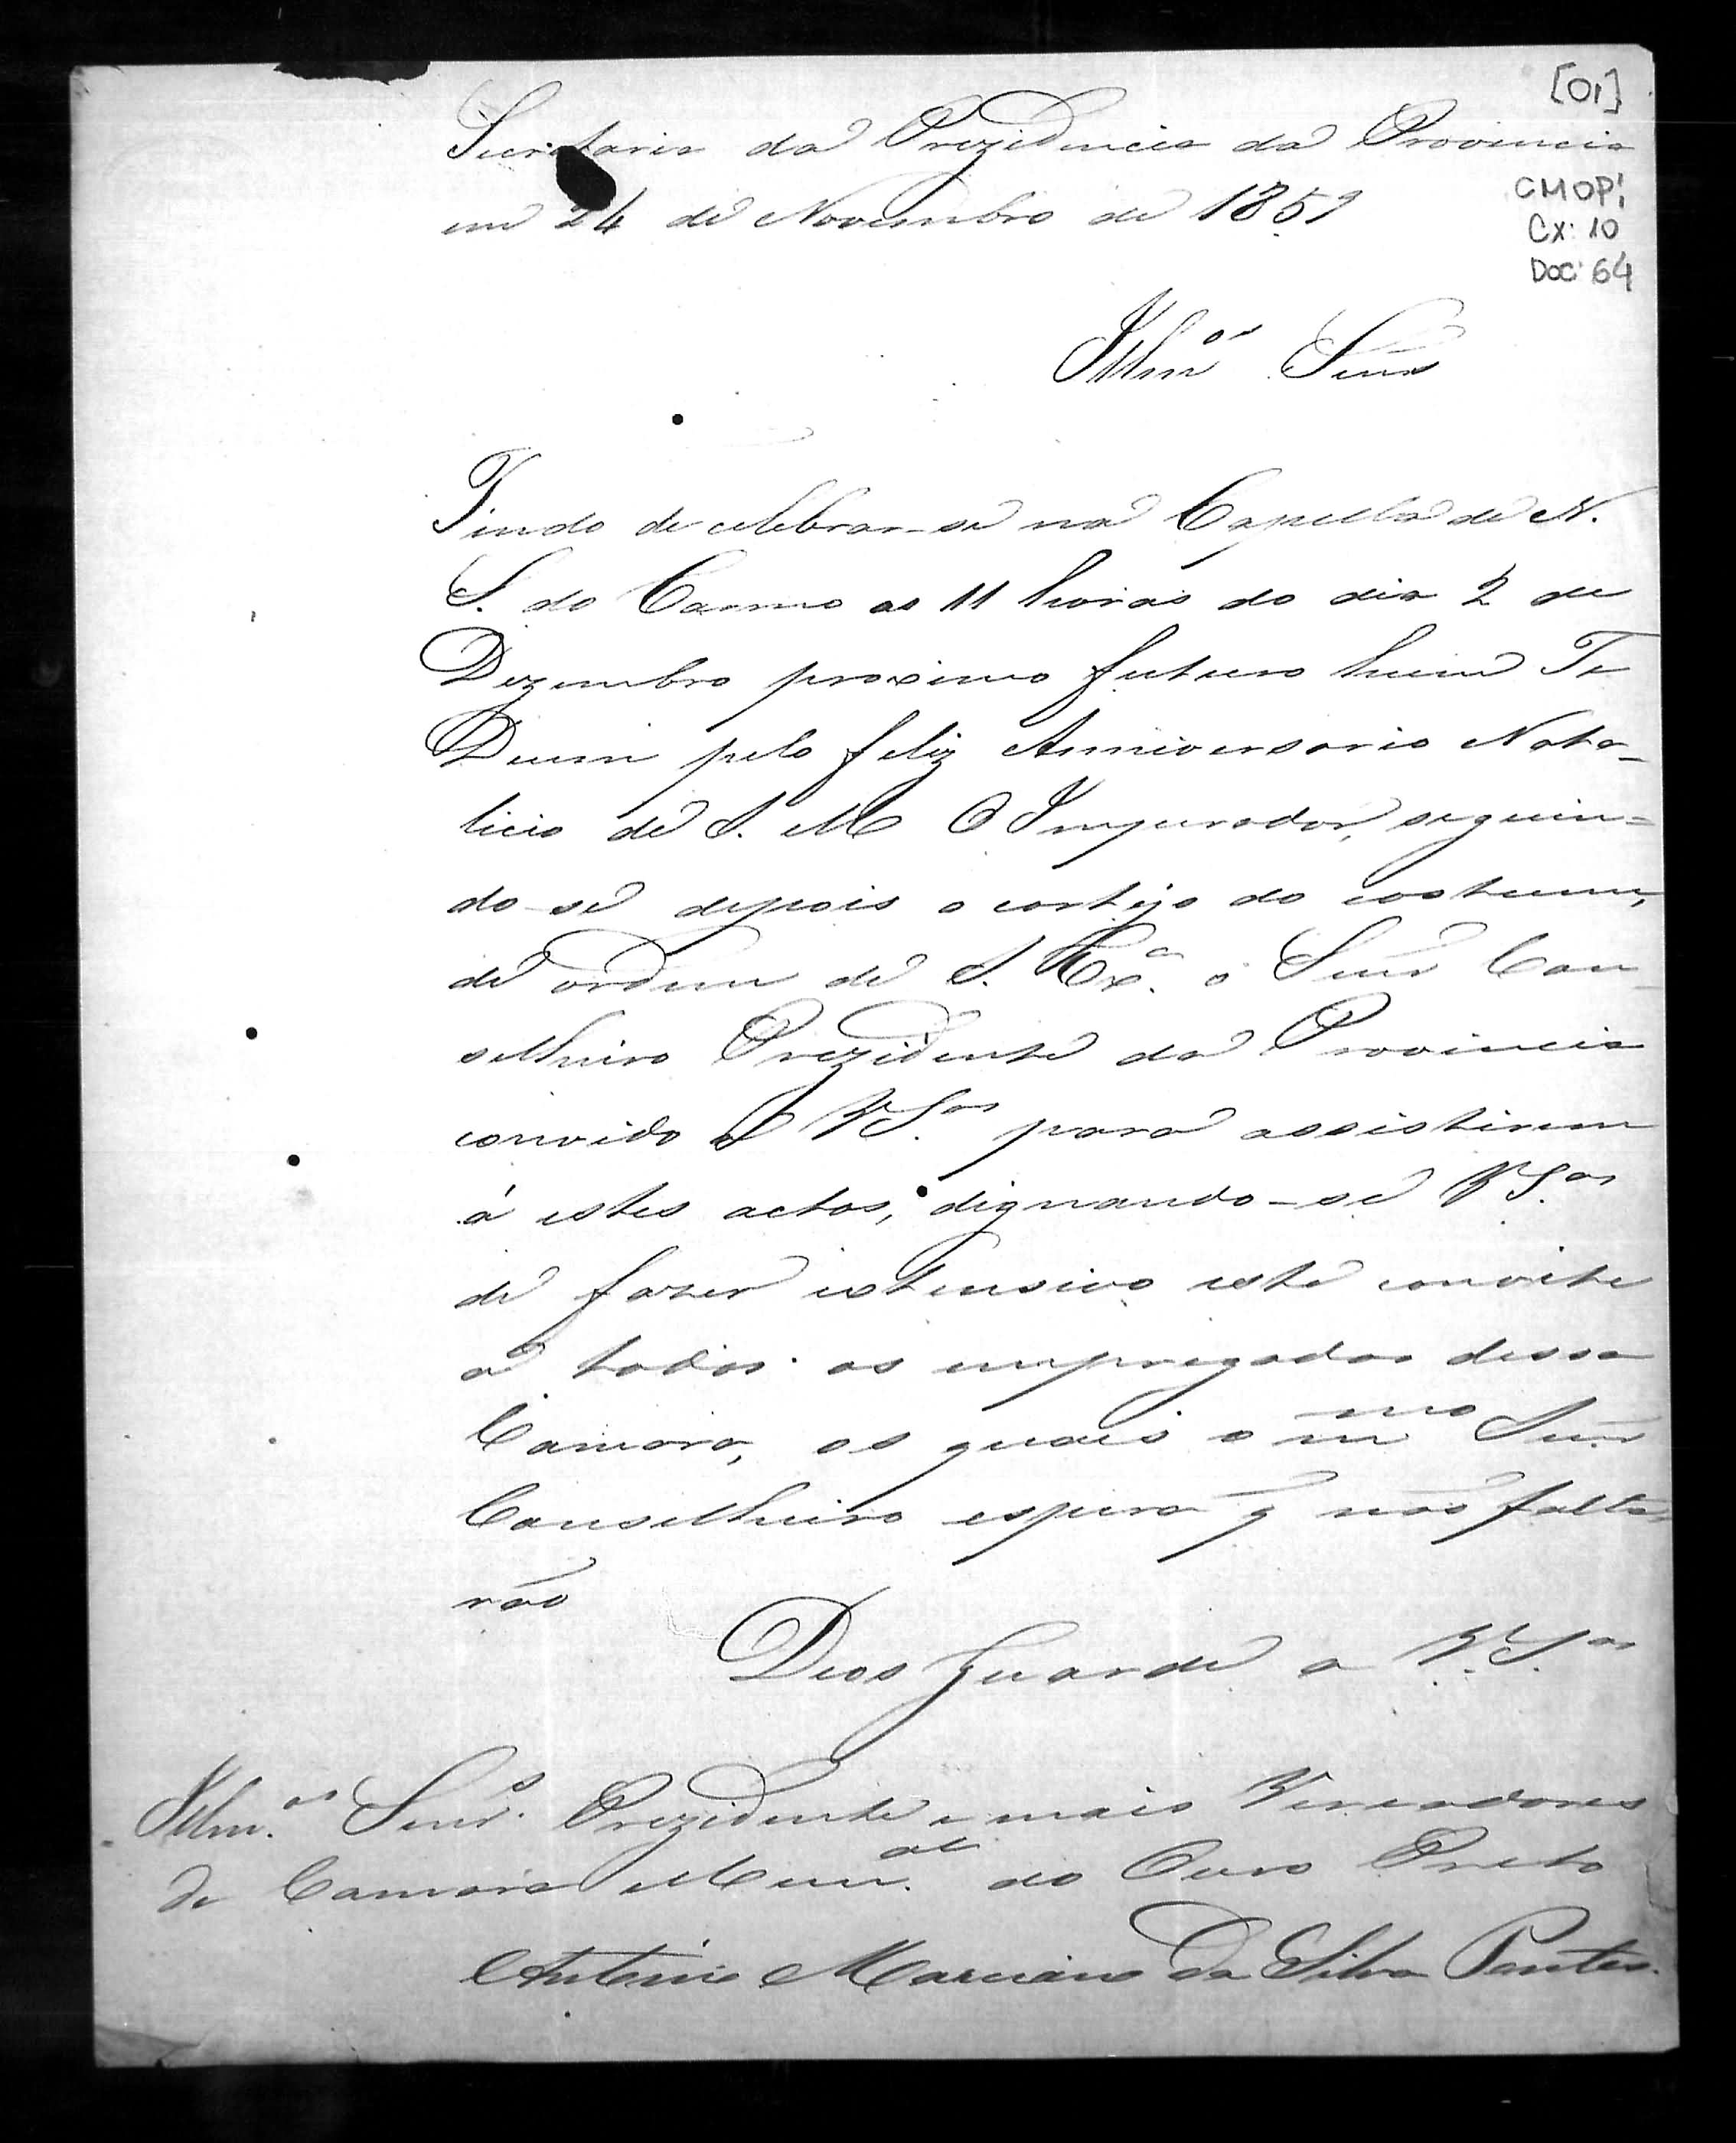 [01]
Secretaria da Prezidencia da Provincia
em 24 de Novembro de 1859
CMOP:
Cx: 10
Doc: 64
Illm.os Senrs
Tendo de celebrar-se na Capella de N.
S. do Carmo as 11 horas do dia 2 de
Dezembro proximo futuro hum Te
Deum pelo feliz Anniversario Nata-
licio de S. M. O Imperador, seguin-
do-se depois o cortejo do costume,
de ordem de S. Ex.a o Senr Con
selheiro Prezidente da Provincia
convido a VS.as para assistirem
á estes actos, dignando-se VS.as
de fazer extensivo este convite
a todos os empregados dessa
Camara, os quais o mmo Senr
Conselheiro espera q̃ não falta-
rão
Deos Guarde a V.S.as
Illm.os Senr.s Prezidente e mais Vereadores
da Camara Mun.al do Ouro Preto
Antonio Marciano da Silva Pontes.